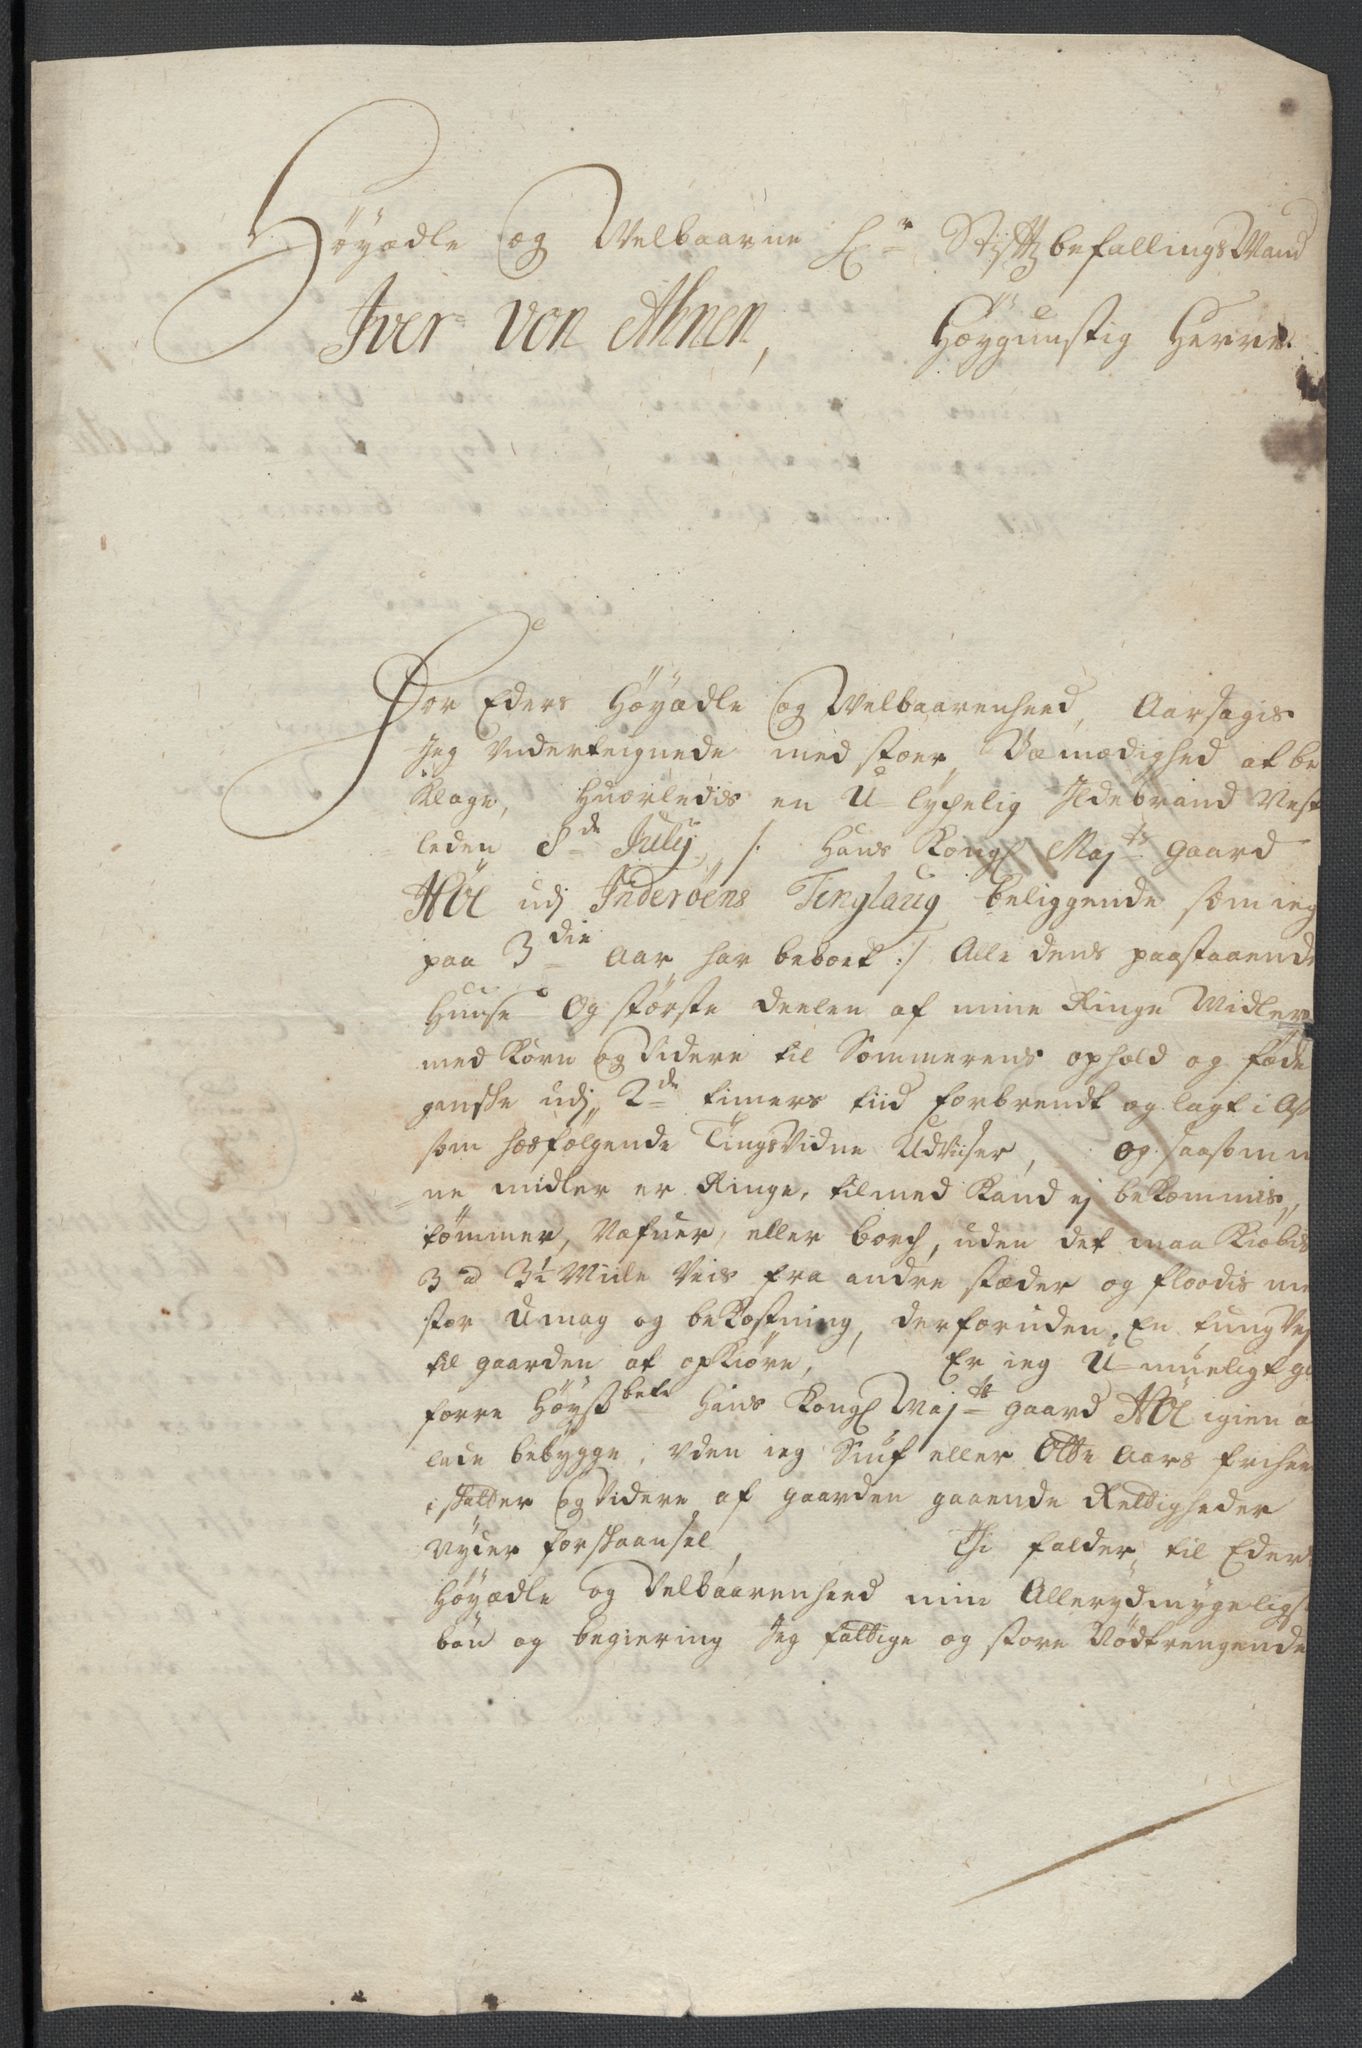 Höyædle og Welbaarne Hr. Stifftbefallings Mand
Iver von Ahnen, Höygunstig Herre.
For Eders Höyædle og Welbaarenheed, Aarsagis
Jeg Underteignede med stoer Væmædighed at be
klage, huorledis en U-lychelig Ildebrand Nest
leden 8de July, /: Hans Kongl Majts gaard
Höl udj Inderöens Tinglaug beliggende som ieg
paa 3die Aar har beboet :/ Alle dens paastaaende
Huuse Og störste deelen af mine Ringe Midler
med Korn og Videre til Sommerens ophold og föde
gandske udj 2de timers tiid forbrendt og lagt i As
som hosfölgende Tings Vidne Udviiser, og saasom mi
ne midler er Ringe, tilmed Kand ej bekommis,
tömmer, Nafuer, eller borch, uden det maa Kiöbis
3 a 3½ Miile Veis fra andre stæder og floedis me
stor Umag og bekostning, derforuden En tung Vej
til gaarden at opkiöre, Er ieg U-mueligt
forre Höystbete Hans Kongl Majts gaard Höl igien
lade bebygge, uden ieg Siuf eller Otte Aars frihee
i skatter og Videre af gaarden gaaende Rettigheder
Nyder forskaansel, Thi falder til Eders
Höyædle og Velbaarenheed min Allerydmygeligst
bön og begiering Jeg fattige og store Nödtrengende